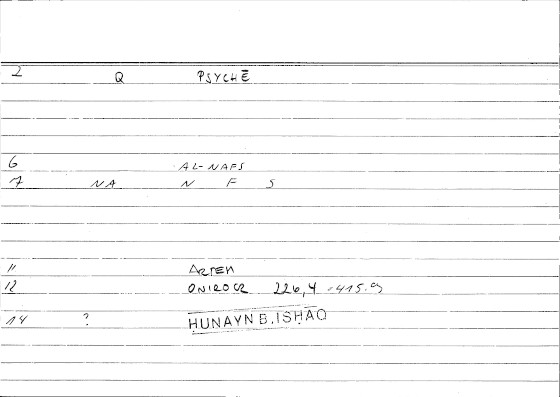 2 Q PSYCHĒ
6 AL-NAFS
7 NA N F S
11 ARTEM
12 ONIROCR 226,4 -415.9
14 ? ḤUNAYN B. ISḤĀQ